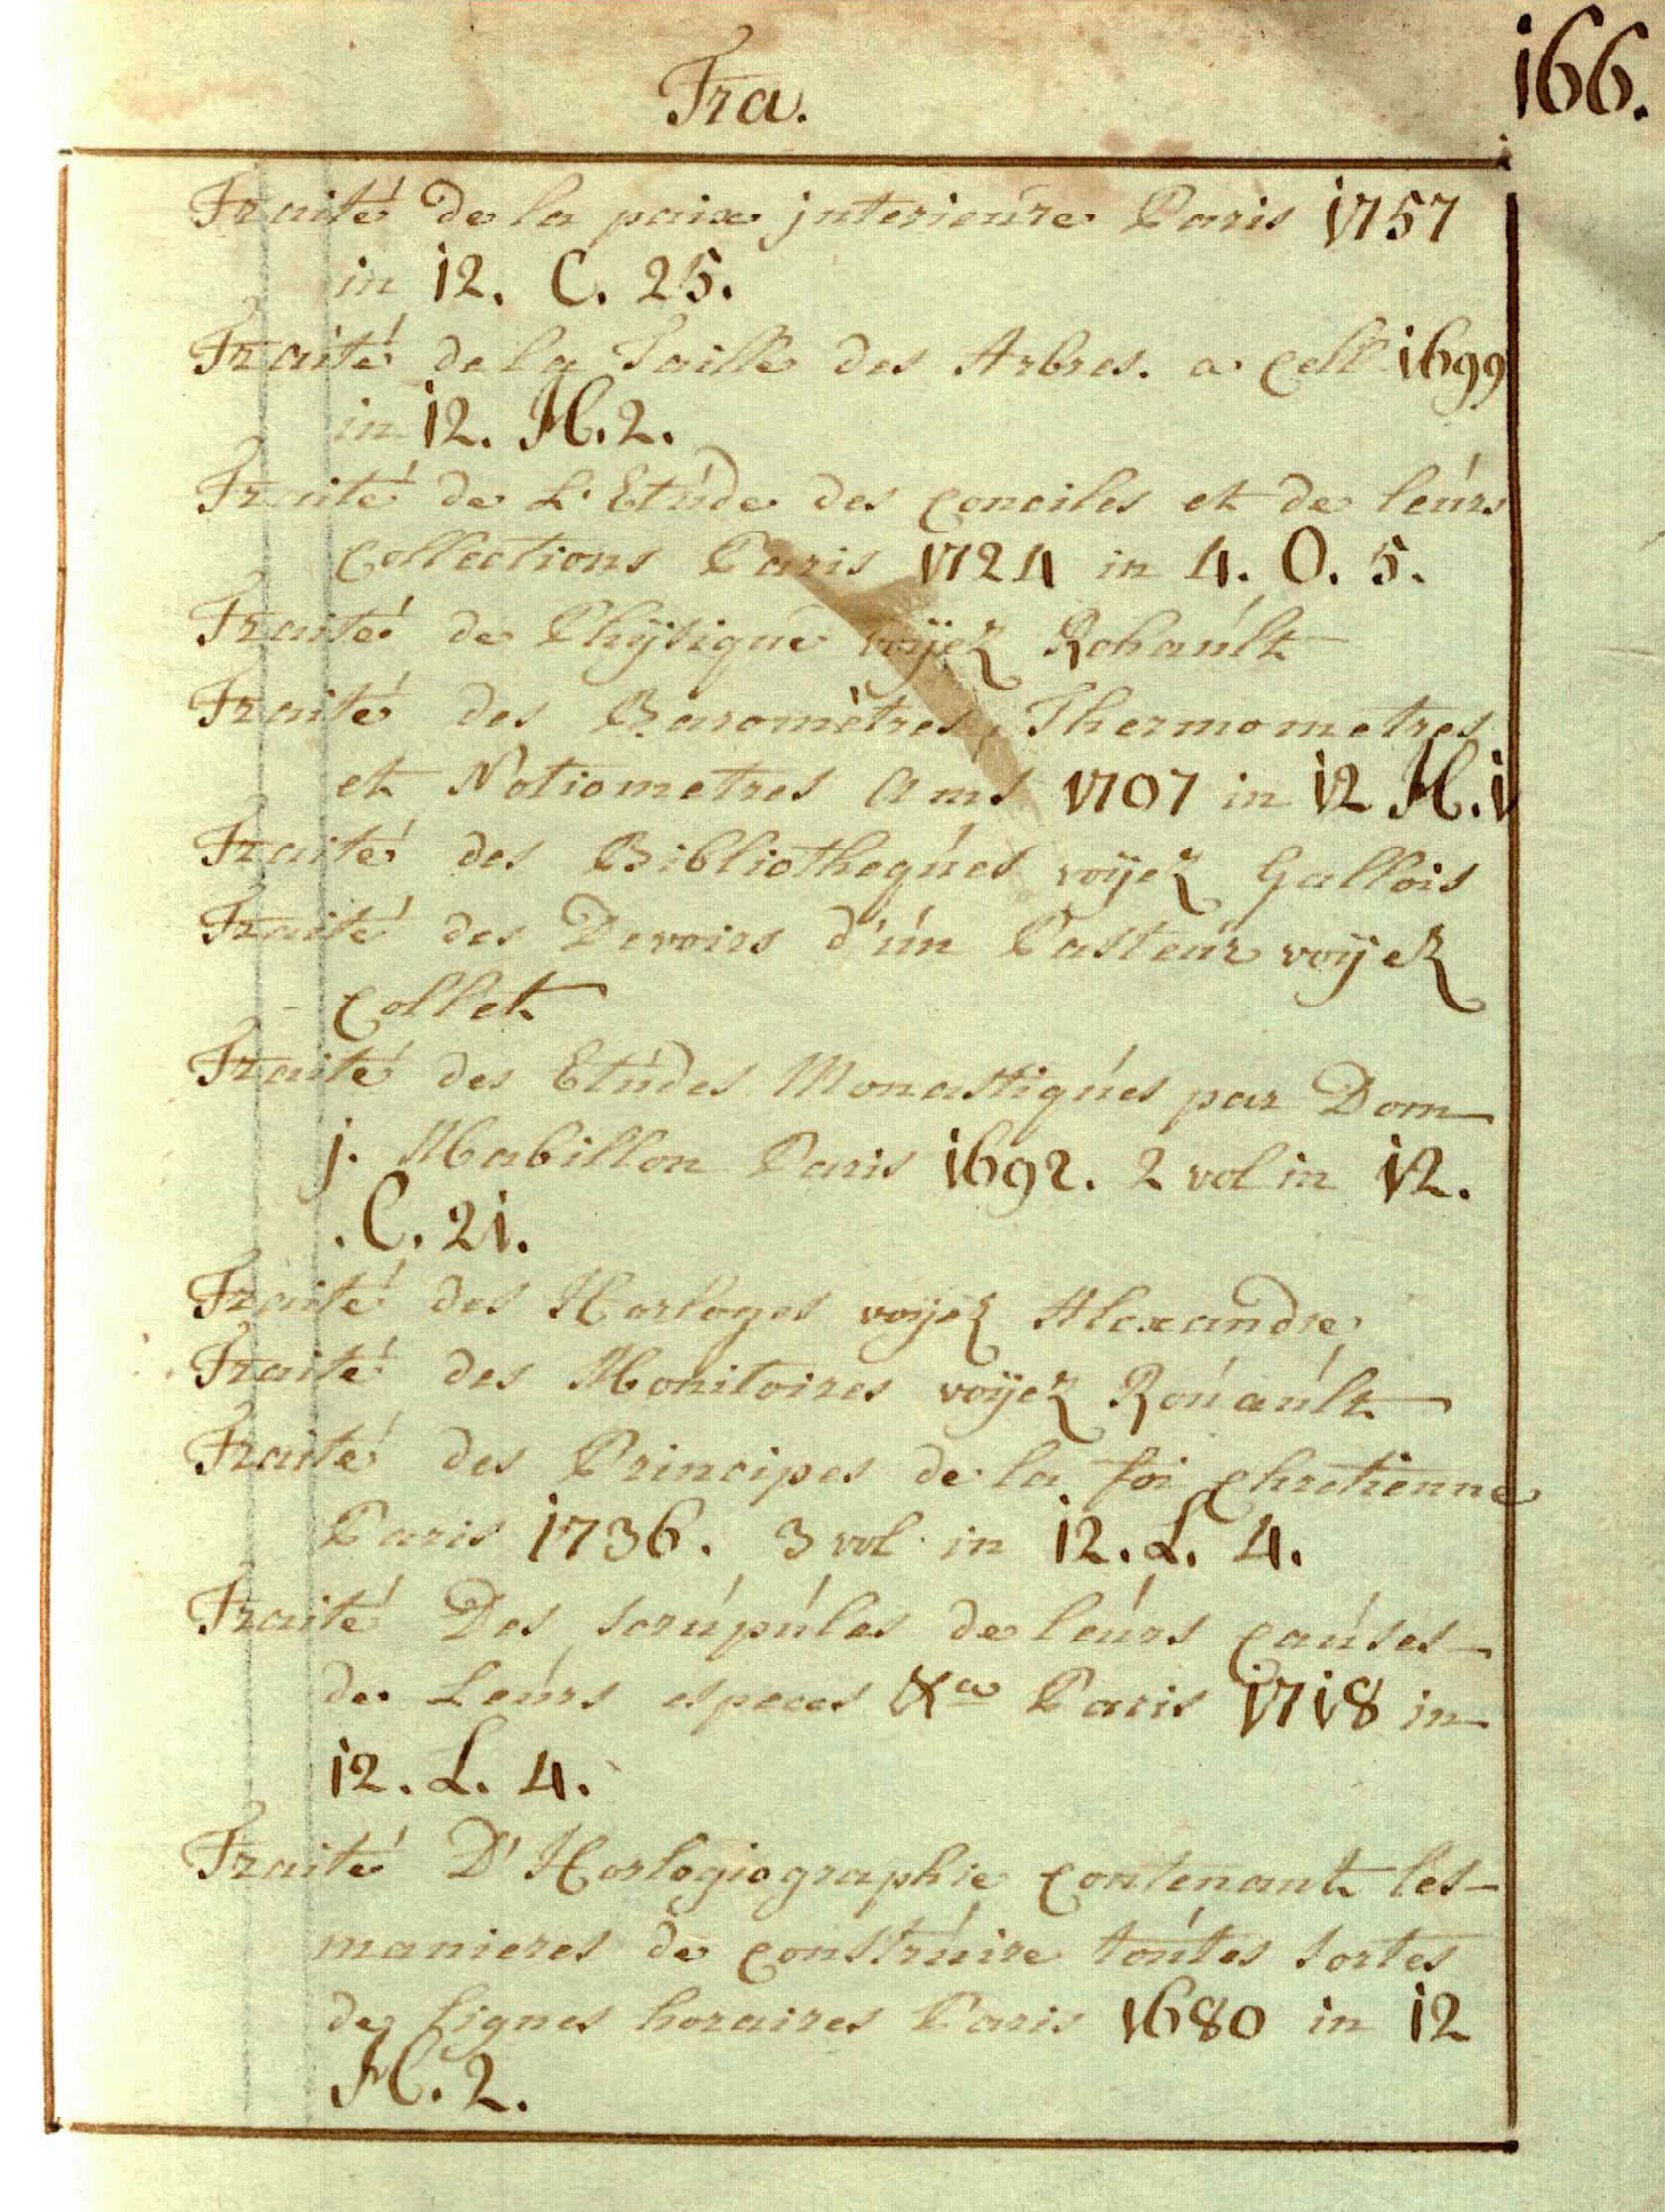 Tra.
166.
Traité de la paix jnterieure Paris 1757
in 12. C. 25.
Traité de la Taille des Arbres. a Cell 1699
in 12. H. 2.
Traité de L'Etude des Conciles et de leurs
Collections Paris 1724 in 4. O. 5.
Traité de Phÿsique voÿez Rohault
Traité des Baromètres, Thermometres
et Notiometres Ams 1707 in 12 H. 1
Traité des Bibliotheques voÿez Gallois
Traité des Devoirs d'un Pasteur voÿez
- Collet
Traité des Etudes Monastiques par Dom
j. Mabillon Paris 1692. 2 vol in 12.
. C. 21.
Traité des Horloges voÿez Alexandre
Traité des Monitoires voÿez Rouault
Traité des Principes de la foi Chretienne
Paris 1736. 3 vol in 12. L. 4.
Traité Des scrupules de leurs Causes
de Leurs especes &a Paris 1718 in
12. L. 4.
Traité D'Horlogiographie Contenant les
manieres de Construire toutes sortes
de lignes horaires Paris 1680 in 12
H. 2.